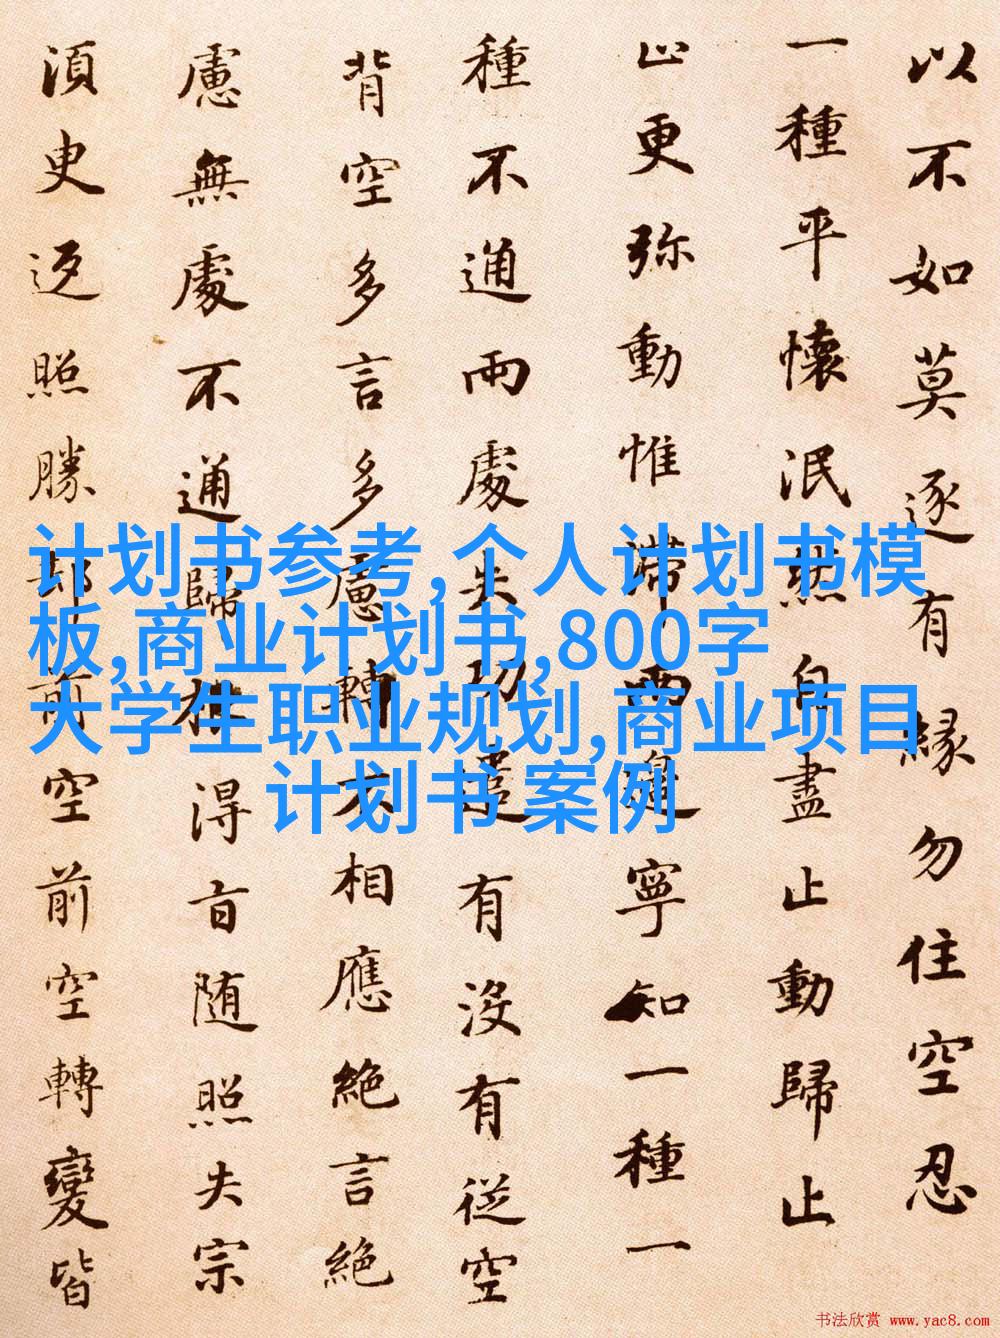 以不如莫逐有緣勿住空忍
一種平懷泯然自盡止動歸止
止更弥動惟滯兩邊寧知一種一
種不通兩處失功遣有没有従空
背空多言多慮轉不相應絶言絶
慮無處不通歸根得旨随照失宗
須臾返照勝却前空前空轉變皆
计划书参考,个人计划书模
板,商业计划书,800字
大学生职业规划,商业项目
计划书 案例
书法欣赏 www.yac8.com